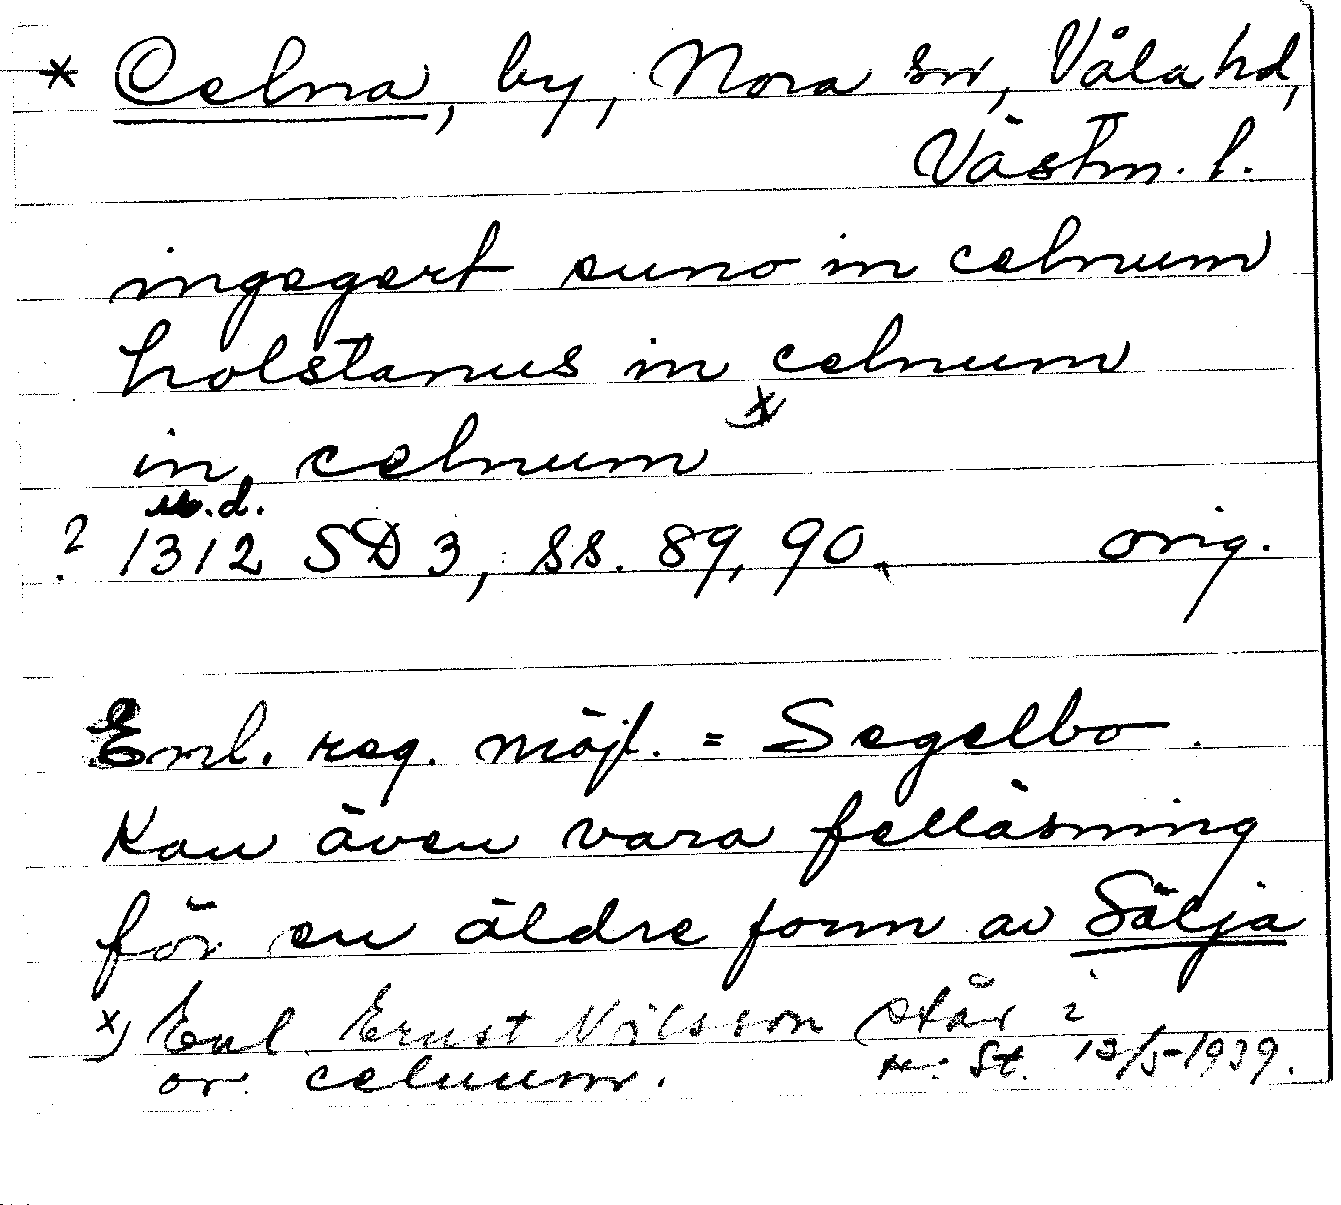 * Celna, by, Nora sn, Våla hd,
Västm. l.
ingegert suno in celnum
holstanus in celnum
in celnum x)
u.d.
? 1312 SD 3, ss. 89, 90. orig.
Enl. reg. möjl. = Segelbo.
Kan även vara felläsning
för en äldre form av Sälja
x) Enl Ernst Nilsson står i
or. celuum. St. 12/5-1939.